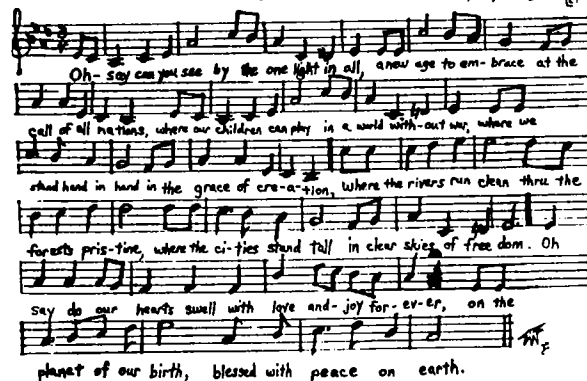 Oh- say can you see by the one light in all, a new age to em- brace at the
call of all nations, where our children can play in a world with-out war, where we
stand hand in hand in the grace of cre-a-tion, where the rivers run clean thru the
forests pris-tine, where the ci-ties stand tall in clear skies of free dom. Oh
say do our hearts swell with love and- joy for-ev-er, on the
planet of our birth, blessed with peace on earth.